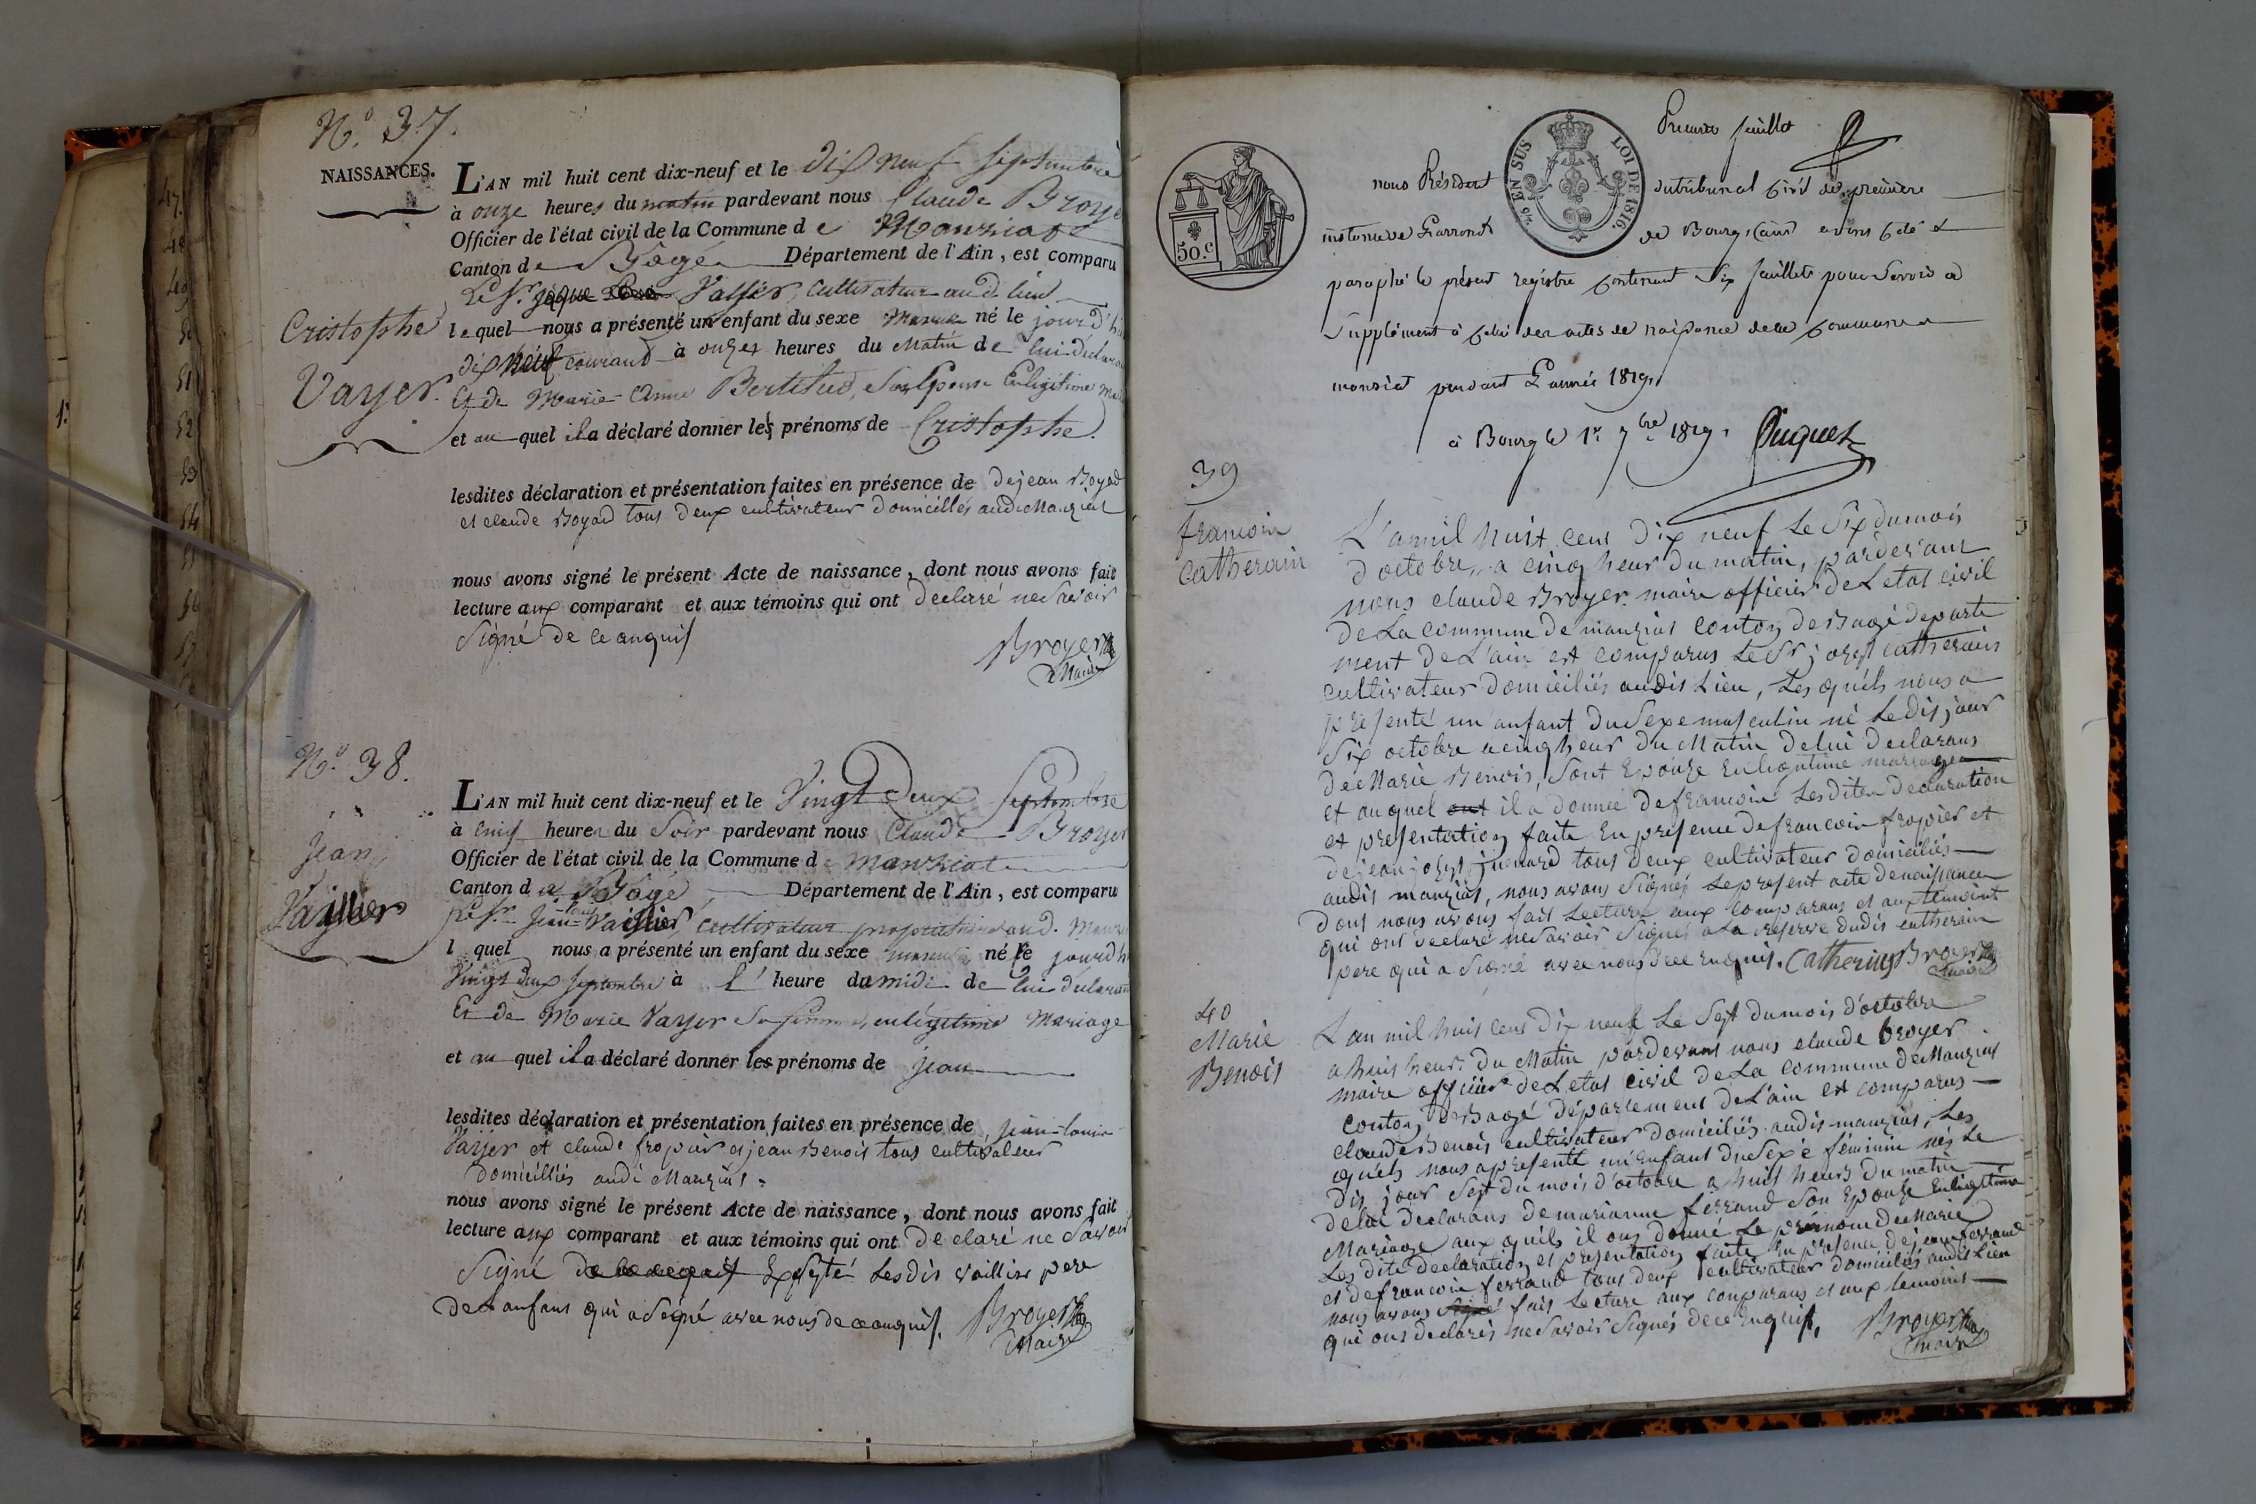 N.o 37.
NAISSANCES.
Cristophe
Vayer.
L'AN mil huit cent dix-neuf et le dix neuf septembre
à onze heures du matin pardevant nous Claude Broye
Officier de l'état civil de la Commune de Manziat
Canton de Bâgé Département de l'Ain, est comparu
Le Sr. Vayer, cultivateur aud. lieu
lequel nous a présenté un enfant du sexe né le jourd'h
dix neuf courant à onzes heures du Matin de lui déclaran
Et de Marie Anne son Epouse
et au quel il a déclaré donner les prénoms de Cristophe.
lesdites déclaration et présentation faites en présence de dejean Boyad
et claude Boyad tous deux cultivateur domicilles audi Manziat
nous avons signé le présent Acte de naissance, dont nous avons fait
lecture aux comparant et aux témoins qui ont declaré ne savoir
Signé de ce anquis
Broyer
Maire
N.o 38.
jean
Vaillier
L'AN mil huit cent dix-neuf et le Vingt Deux Septembre
à cinq heures du Soir pardevant nous Claude Broyer
Officier de l'état civil de la Commune de manziat
Canton de Bâgé Département de l'Ain, est comparu
Le Sr. jean louis Vaillier cultivateur propriétaire aud.
l quel nous a présenté un enfant du sexe masculin né le jourdh
Vingt deux septembre à l' heure du midi de lui déclaran
Et de Marie Vayer sa femme, en légitime Mariage
et au quel il a déclaré donner les prénoms de jean
lesdites déclaration et présentation faites en présence de jean-louis
Vayer et claude fropier et jean Benois tous cultivateur
domicilliés audi Manziat.
nous avons signé le présent Acte de naissance, dont nous avons fait
lecture aux comparant et aux témoins qui ont De claré ne savoir
Signé Lesdis vaillier pere
de L anfant qui a signé avec nous de ce anquis. Broyer
Maire
50.c
25 EN SUS
LOI DE 1816.
Premier feuillet
nous Président du tribunal civil de première
instance de l'arrond. de Bourg (ain) avons coté &
paraphé le présent registre contenant six feuillets pour servir de
Supplément à celui des actes de naissance de la commune de
manziat pendant L'année 1819.
à Bourg le 1er 7bre 1819.
39
francois
catherain
L'an mil huit cens Dix neuf Le Six du mois
d'octobre, a cinq heur du matin, pardevant
nous claude Broyer maire officier de Letat civil
de La commune de manziat conton de Bagé departe
ment de L'ain est comparus Le Sr josept catherain
cultivateur domiciliés audis Lieu, Les quels nous a
presenté un anfant du Sexe masculin né Ledis jour
Six octobre a cinq heur du Matin de lui declarans
de Marie Benois, Sont Epouze En legitime mariage
et auquel il a donnée de francois Lesdites declaration
et presentation faite En présence de francois fropier et
de jean josept tous deux cultivateur domiciliés
audis manziat, nous avons Signés Le present acte de naissance
Dont nous avons fait Lecture aux comparans et aux temoint
qui ont declaré ne savoir Signés a La reserve dudis catherain
pere qui a Signé avec nous de ce enquis. Catherin Broyer
Maire
40
Marie
Benois
L an mil huis cens Dix neuf Le Sept du mois d'octobre
a huis heur: du Matin pardevant nous claude broyer
maire officier de Letat civil de La commune de Manziat
conton de Bagé département de L'ain est comparus
claude Benois cultivateur domiciliés audis manziat, Les
quels nous a presenté un Enfant du Sexe féminin nés Le
dis jour Sept du mois d'octobre a huis heurs du matin
de lui declarans de marianne ferrand Son Epouze En legitime
Mariage aux quels il ons donné Le prénom de Marie
Les dite declaration et presentation faite En presence de jean ferrand
et de francois ferrand tous deux cultivateur domiciliés audis Lien
nous avons fait Lecture aux comparans et aux temoins
qui ons declarés ne savoir Signés de ce Enquis, Broyer
Maire